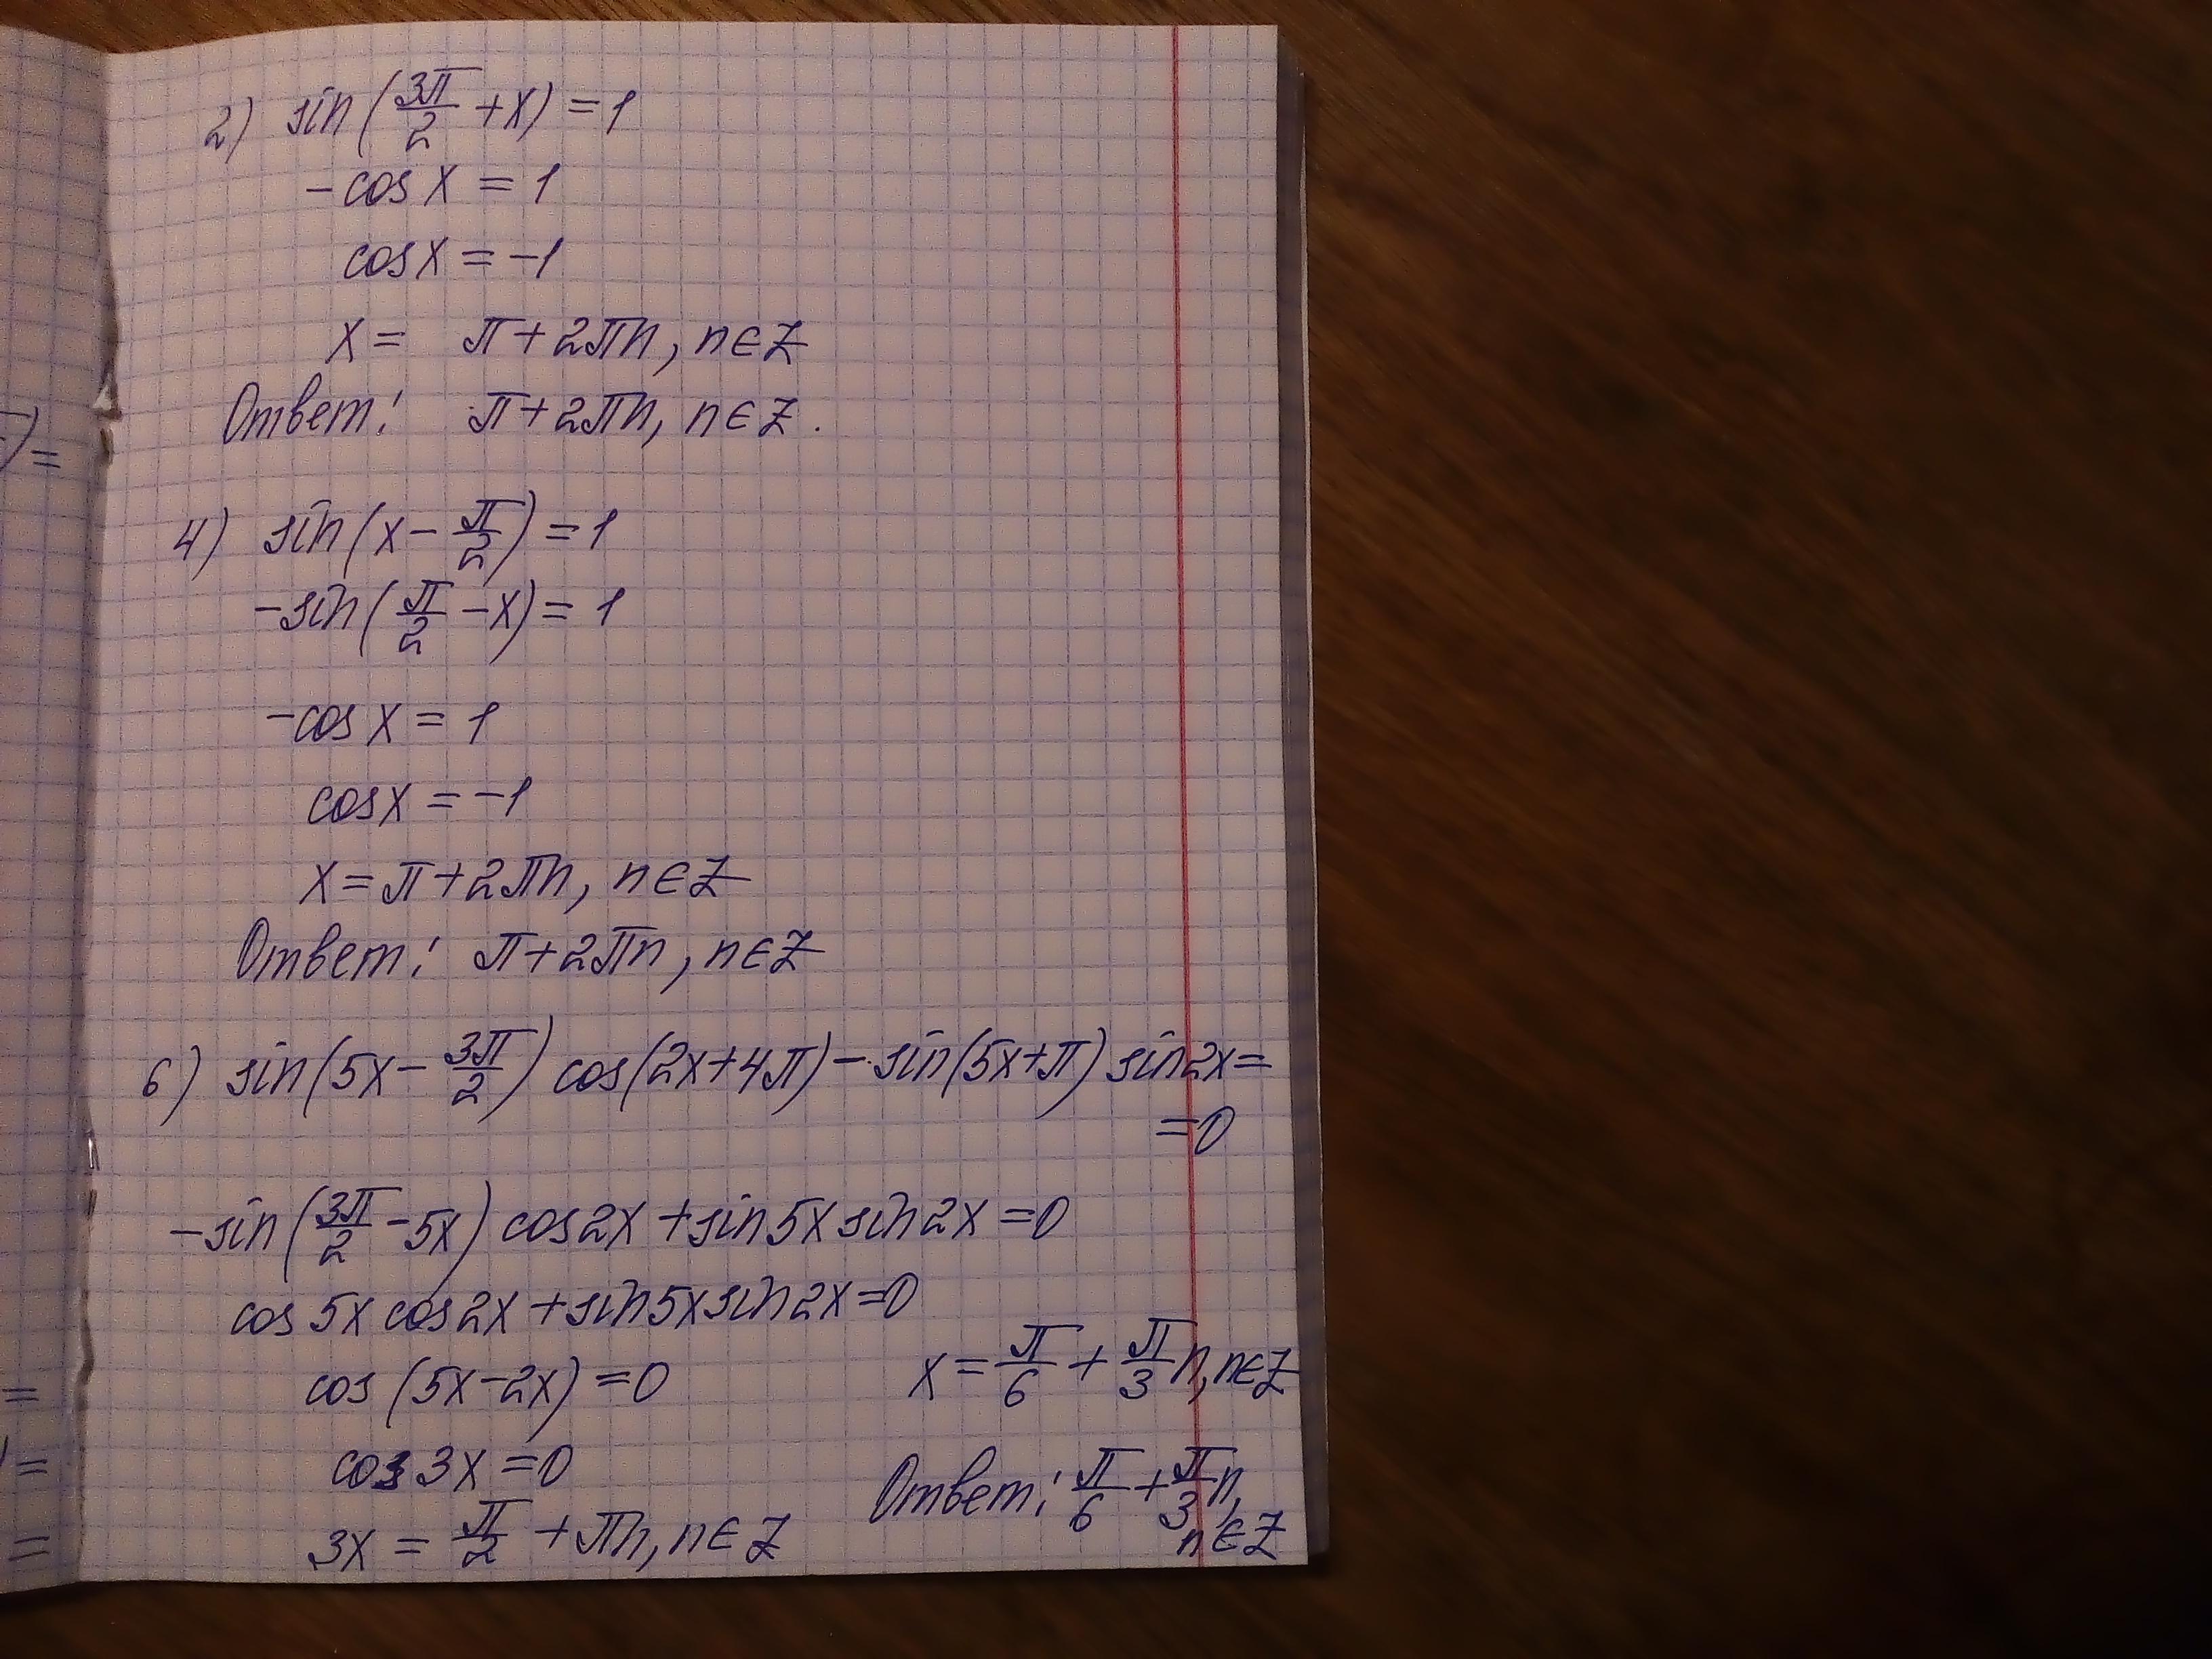 2) sin(3π/2 + x) = 1
-cos x = 1
cos x = -1
x = π + 2πn, n∈Z
Ответ: π + 2πn, n∈Z.
4) sin(x - π/2) = 1
-sin(π/2 - x) = 1
-cos x = 1
cos x = -1
x = π + 2πn, n∈Z
Ответ: π + 2πn, n∈Z
6) sin(5x - 3π/2) cos(2x + 4π) - sin(5x + π) sin2x =
= 0
-sin(3π/2 - 5x) cos2x + sin5x sin2x = 0
cos 5x cos2x + sin5x sin2x = 0
cos (5x - 2x) = 0
cos 3x = 0
3x = π/2 + πn, n∈Z
x = π/6 + π/3 n, n∈Z
Ответ: π/6 + π/3 n,
n∈Z
) =
=
) =
=